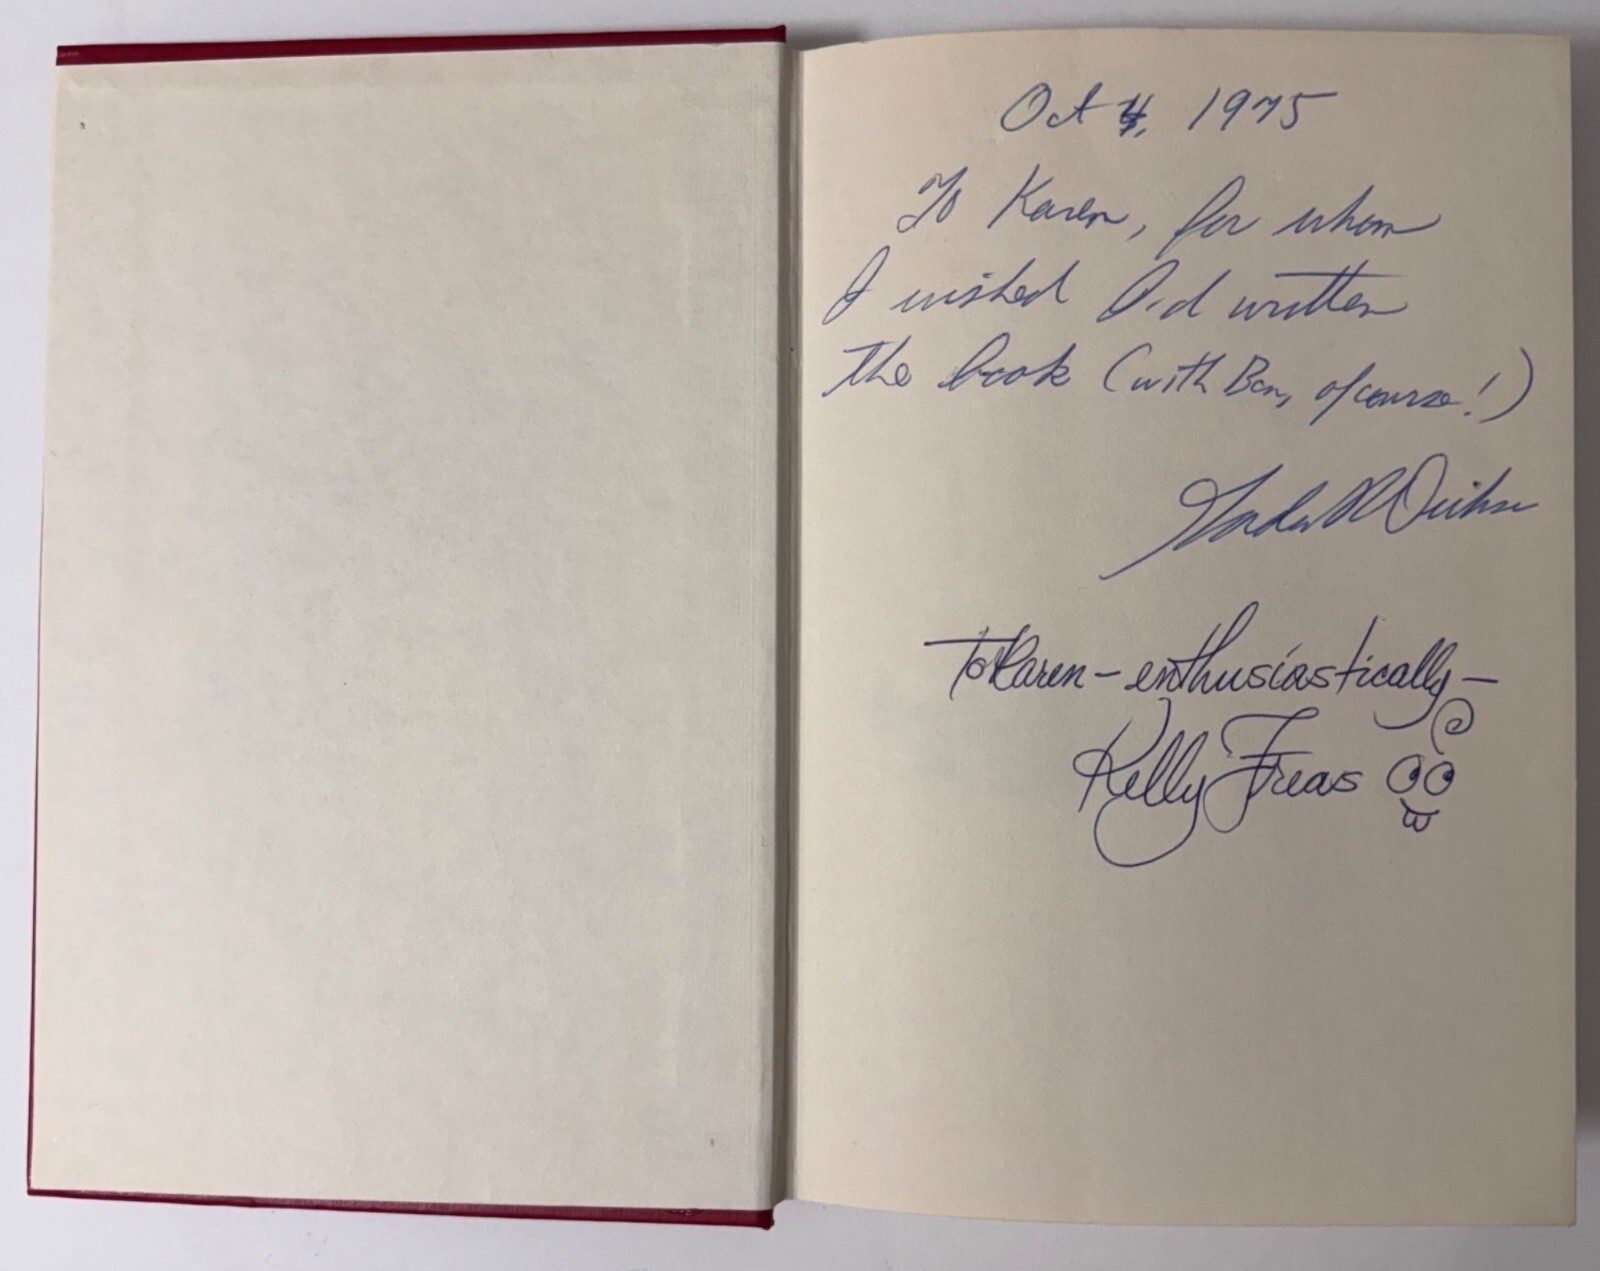 Oct 4, 1975
To Karen, for whom
I wished I'd written
the book (with Ben, of course!)
Gordon R Dickson
To Karen – enthusiastically –
Kelly Freas